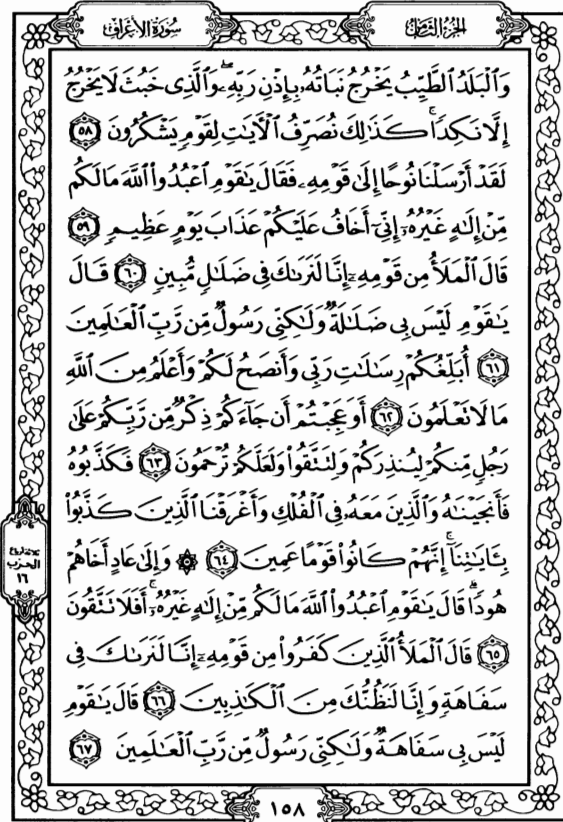 سُورَةُ الأَعْرَافِ
الجُزْءُ الثَّامِنُ
وَٱلْبَلَدُ ٱلطَّيِّبُ يَخْرُجُ نَبَاتُهُۥ بِإِذْنِ رَبِّهِۦۖ وَٱلَّذِى خَبُثَ لَا يَخْرُجُ
إِلَّا نَكِدًاۚ كَذَٰلِكَ نُصَرِّفُ ٱلْءَايَٰتِ لِقَوْمٍ يَشْكُرُونَ ٥٨
لَقَدْ أَرْسَلْنَا نُوحًا إِلَىٰ قَوْمِهِۦ فَقَالَ يَٰقَوْمِ ٱعْبُدُوا۟ ٱللَّهَ مَا لَكُم
مِّنْ إِلَٰهٍ غَيْرُهُۥٓ إِنِّىٓ أَخَافُ عَلَيْكُمْ عَذَابَ يَوْمٍ عَظِيمٍ ٥٩
قَالَ ٱلْمَلَأُ مِن قَوْمِهِۦٓ إِنَّا لَنَرَىٰكَ فِى ضَلَٰلٍ مُّبِينٍ ٦٠ قَالَ
يَٰقَوْمِ لَيْسَ بِى ضَلَٰلَةٌ وَلَٰكِنِّى رَسُولٌ مِّن رَّبِّ ٱلْعَٰلَمِينَ
٦١ أُبَلِّغُكُمْ رِسَٰلَٰتِ رَبِّى وَأَنصَحُ لَكُمْ وَأَعْلَمُ مِنَ ٱللَّهِ
مَا لَا تَعْلَمُونَ ٦٢ أَوَعَجِبْتُمْ أَن جَآءَكُمْ ذِكْرٌ مِّن رَّبِّكُمْ عَلَىٰ
رَجُلٍ مِّنكُمْ لِيُنذِرَكُمْ وَلِتَتَّقُوا۟ وَلَعَلَّكُمْ تُرْحَمُونَ ٦٣ فَكَذَّبُوهُ
فَأَنجَيْنَٰهُ وَٱلَّذِينَ مَعَهُۥ فِى ٱلْفُلْكِ وَأَغْرَقْنَا ٱلَّذِينَ كَذَّبُوا۟
بِـَٔايَٰتِنَآۚ إِنَّهُمْ كَانُوا۟ قَوْمًا عَمِينَ ٦٤ ۞ وَإِلَىٰ عَادٍ أَخَاهُمْ
هُودًاۗ قَالَ يَٰقَوْمِ ٱعْبُدُوا۟ ٱللَّهَ مَا لَكُم مِّنْ إِلَٰهٍ غَيْرُهُۥٓۚ أَفَلَا تَتَّقُونَ
٦٥ قَالَ ٱلْمَلَأُ ٱلَّذِينَ كَفَرُوا۟ مِن قَوْمِهِۦٓ إِنَّا لَنَرَىٰكَ فِى
سَفَاهَةٍ وَإِنَّا لَنَظُنُّكَ مِنَ ٱلْكَٰذِبِينَ ٦٦ قَالَ يَٰقَوْمِ
لَيْسَ بِى سَفَاهَةٌ وَلَٰكِنِّى رَسُولٌ مِّن رَّبِّ ٱلْعَٰلَمِينَ ٦٧
ثلاثة أرباع
الحزب
١٦
١٥٨